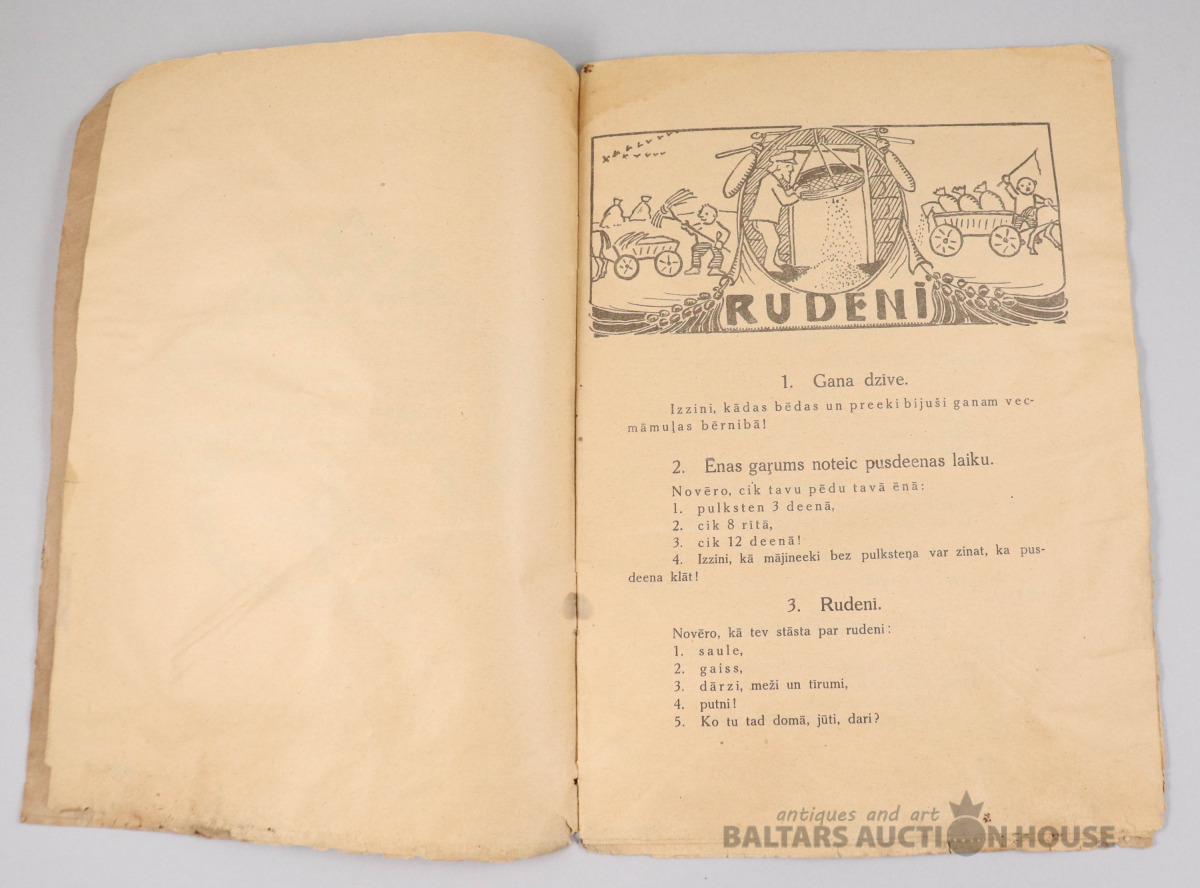 RUDENĪ
1. Gana dzīve.
Izzini, kādas bēdas un preeki bijuši ganam vec-
māmuļas bērnībā!
2. Ēnas gaŗums noteic pusdeenas laiku.
Novēro, cik tavu pēdu tavā ēnā:
1. pulksten 3 deenā,
2. cik 8 rītā,
3. cik 12 deenā!
4. Izzini, kā mājineeki bez pulksteņa var zinat, ka pus-
deena klāt!
3. Rudenī.
Novēro, kā tev stāsta par rudeni:
1. saule,
2. gaiss,
3. dārzi, meži un tīrumi,
4. putni!
5. Ko tu tad domā, jūti, dari?
antiques and art
BALTARS AUCTION HOUSE